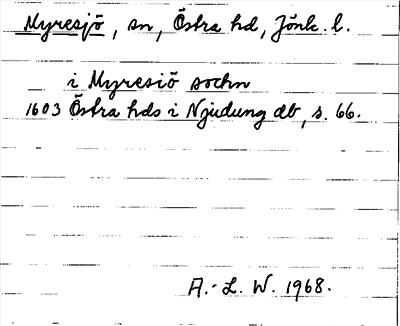 Myresjö, sn, Östra hd, Jönk. l.
i Myresiö sochn
1603 Östra hds i Njudung db, s. 66.
A.-L. W. 1968.